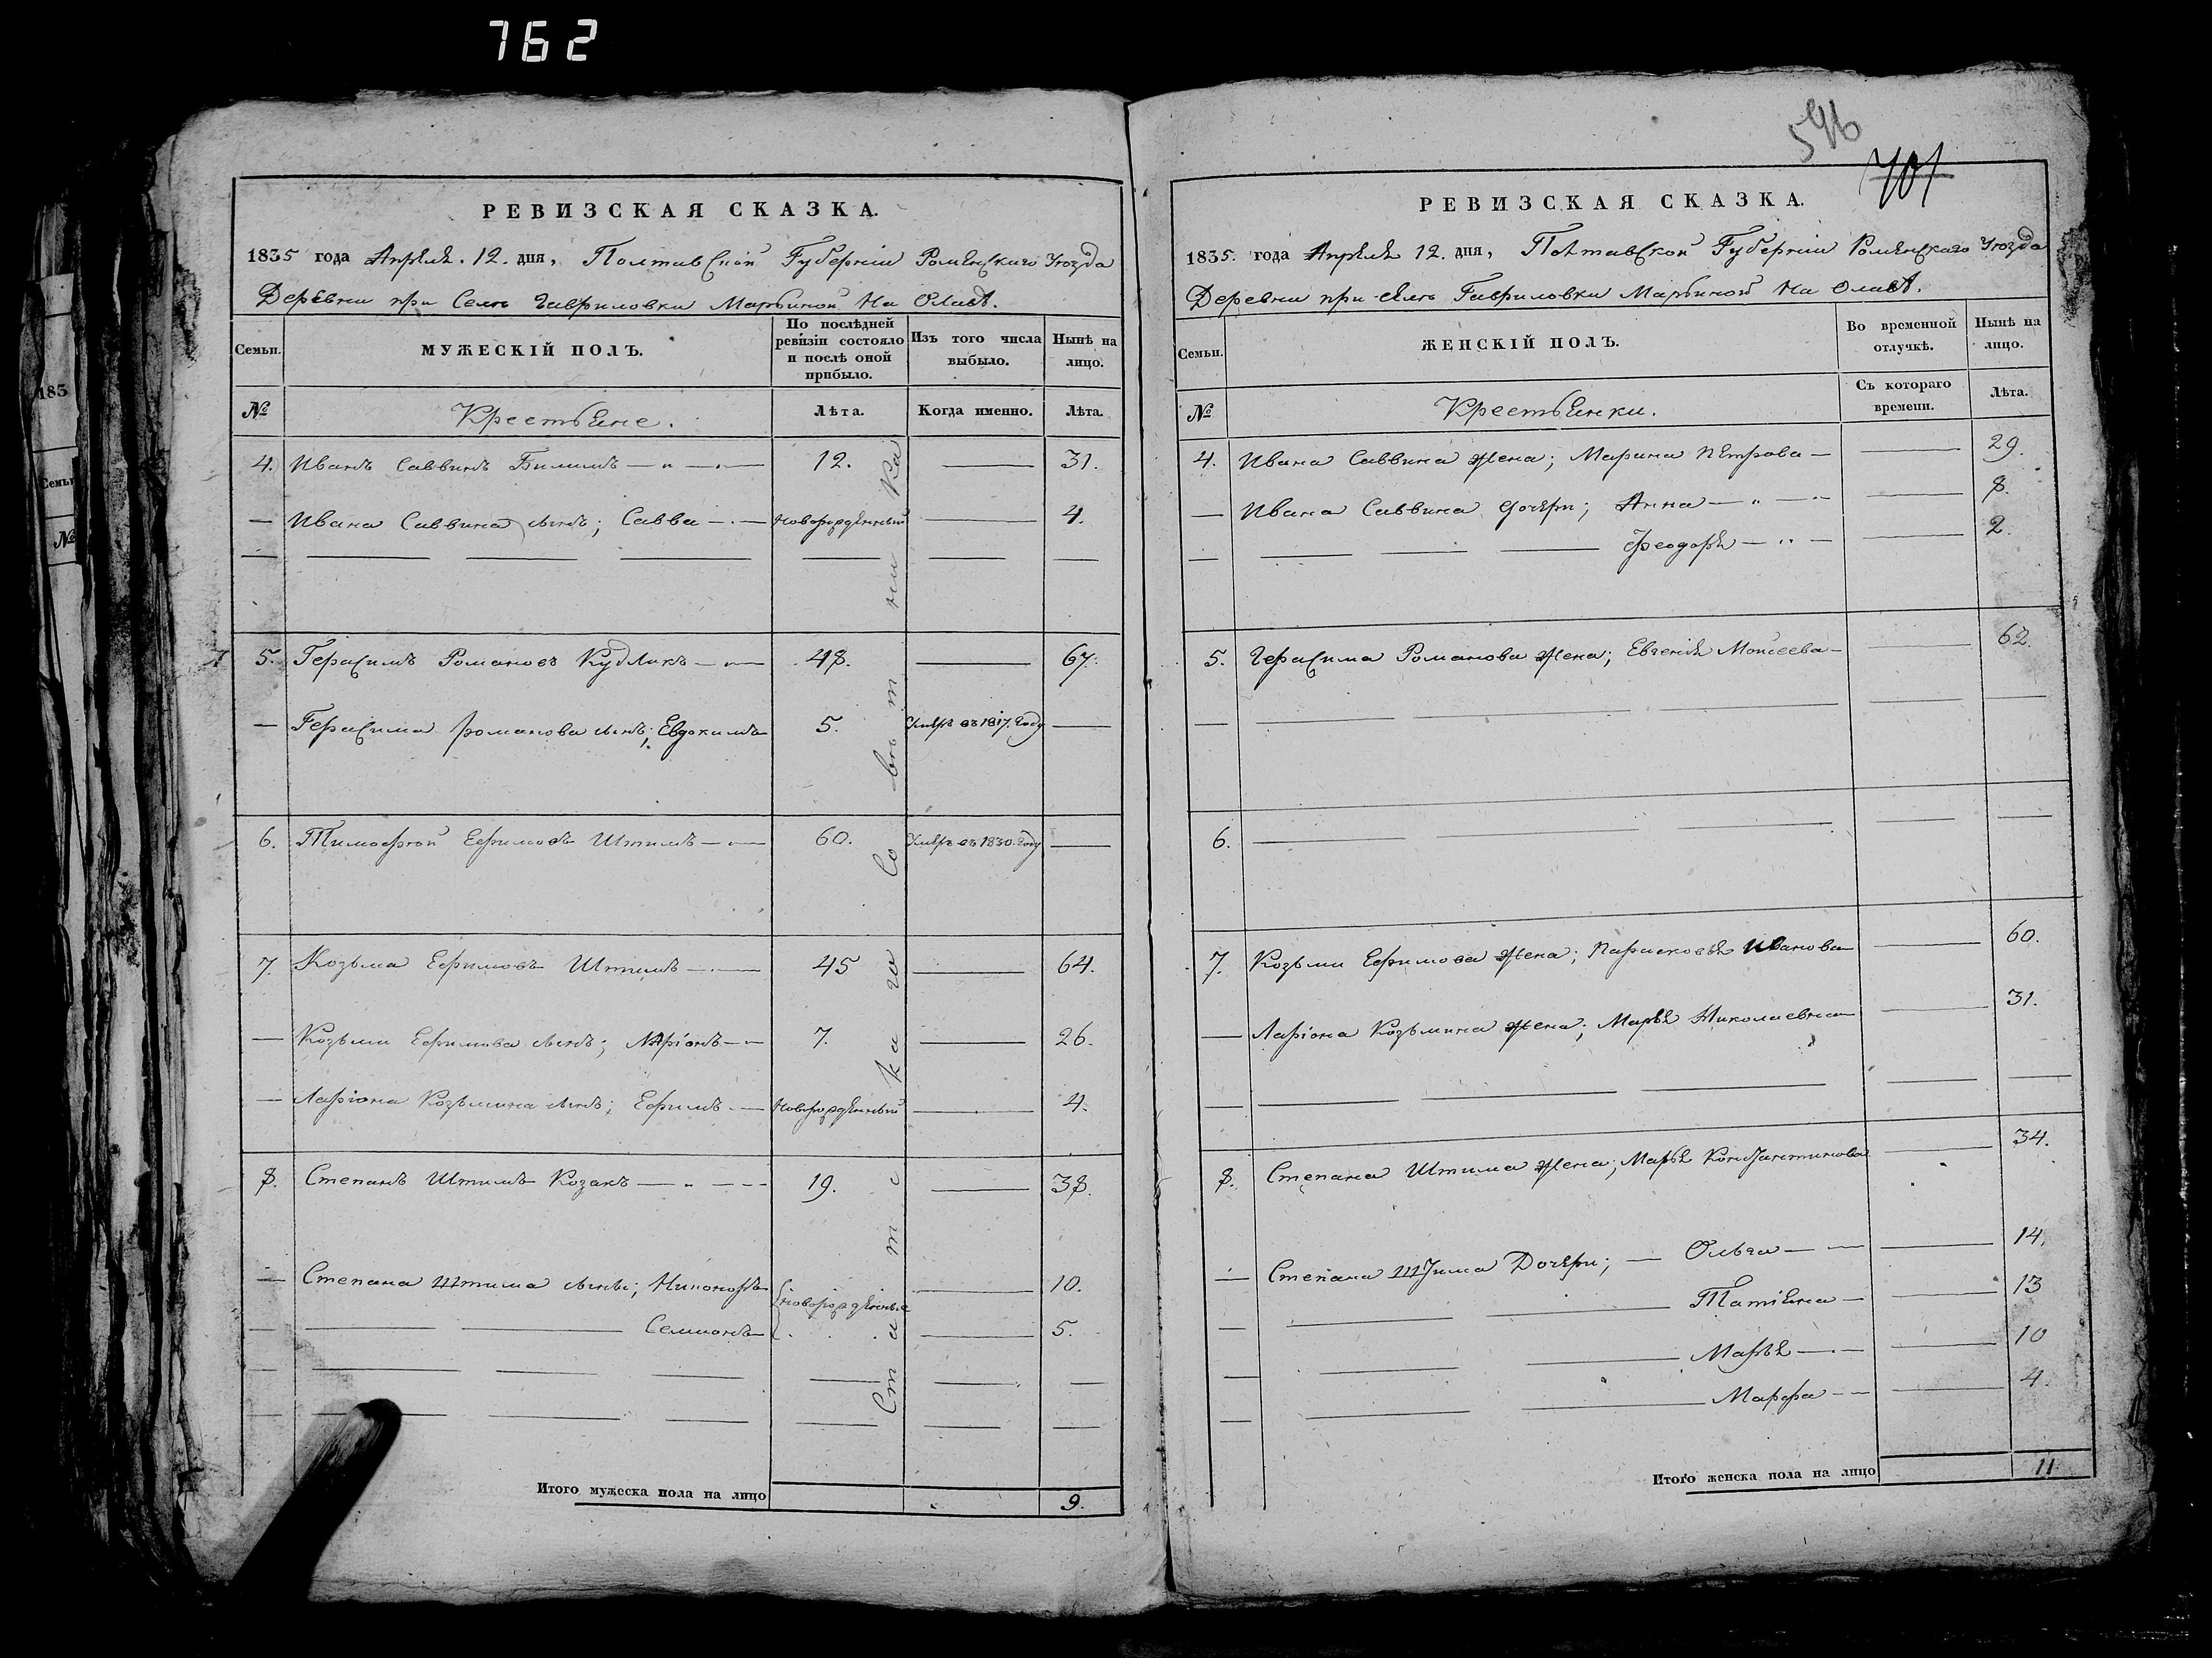 762
183
Семьи
№
РЕВИЗСКАЯ СКАЗКА.
1835 года Апреля. 12. дня, Полтавской Губернии Роменскаго Уезда
Деревни при Селе Гавриловки Марьиной на
Семьи.
МУЖЕСКІЙ ПОЛЪ.
По послѣдней ревизіи состояло и послѣ оной прибыло.
Изъ того числа выбыло.
Нынѣ на лицо.
№
Крестьяне.
Лѣта.
Когда именно.
Лѣта.
4. Иванъ Саввинъ Билимъ 12. 31.
Ивана Саввина сынъ; Савва новорожденный 4.
5. Герасимъ Романовъ Кудликъ 48. 67.
Герасима Романова сынъ; Евдокимъ 5. Умеръ въ 1817. Году
6. Тимофей Ефимовъ Штимъ 60. Умеръ въ 1830. Году
7. Козьма Ефимовъ Штимъ 45 64.
Козьми Ефимова сынъ; Ларіонъ 7. 26.
Ларіона Козьмина сынъ; Ефимъ новорожденный 4.
8. Степанъ Штимъ Козакъ 19. 38.
Степана Штима сыны; Никоноръ новорожденные 10.
Семионъ 5.
Итого мужеска пола на лицо 9.
596
701
РЕВИЗСКАЯ СКАЗКА.
1835. года Апреля 12. дня, Полтавской Губернии Роменскаго Уезда
Деревни при селе Гавриловки Марьиной на
Семьи.
ЖЕНСКІЙ ПОЛЪ.
Во временной отлучкѣ.
Нынѣ на лицо.
№
Крестьянки.
Съ котораго времени.
Лѣта.
4. Ивана Саввина жена; Марина Петрова 29.
Ивана Саввина дочери; Анна 8.
Феодоря 2.
5. Герасима Романова жена; Евгенія Моисеева 62.
6.
7. Козьми Ефимова жена; Парасковья Иванова 60.
Ларіона Козьмина жена; Марья Николаевна 31.
8. Степана Штима жена; Марья Константинова 34.
Степана Штима Дочери; Ольга 14.
Татіяна 13
Марья 10
Марфа 4.
Итого женска пола на лицо 11.